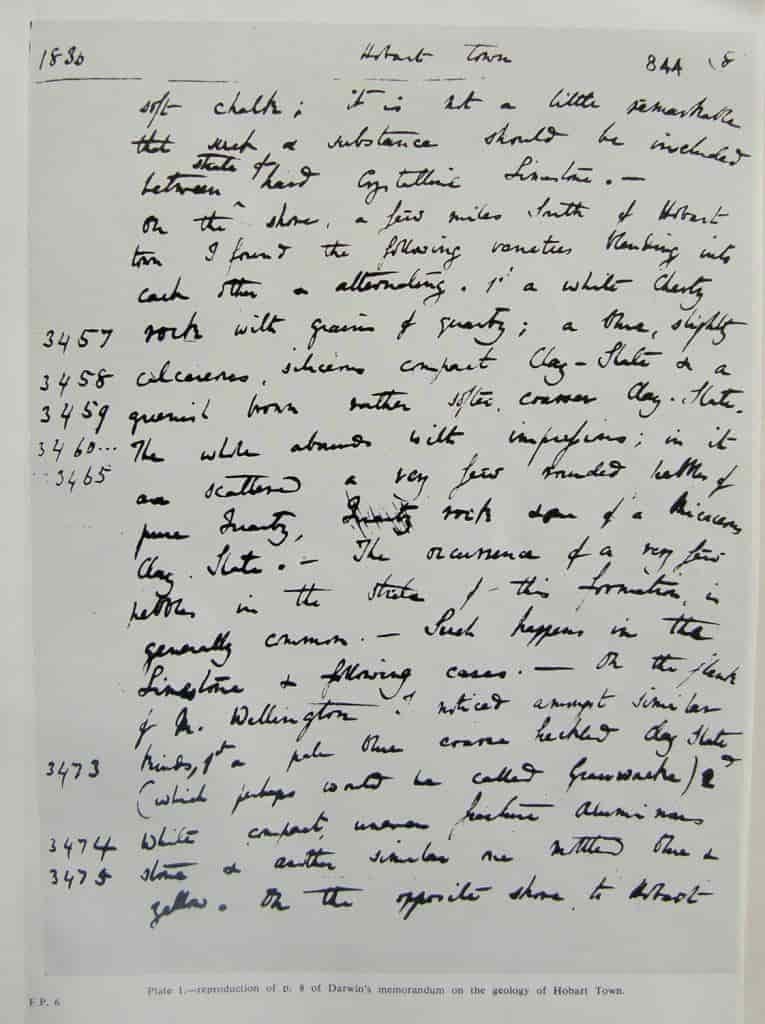 1836 Hobart Town 844 (8
soft chalk; it is not a little remarkable
that such a substance should be included
strata of
between ^ hard Crystalline Limestone. —
On the shore, a few miles South of Hobart
town I found the following varieties blending into
each other & alternating. 1st a white Cherty
3457 rock with grains of quartz; a blue, slightly
3458 calcareous, siliceous compact Clay-Slate & a
3459 greenish brown rather softer, coarser Clay-Slate.
3460... The whole abounds with impressions; in it
...3465 are scattered a very few rounded pebbles of
pure Quartz, Quartz rock & of a Micaceous
Clay Slate. — The occurrence of a very few
pebbles in the strata of this formation, is
generally common. — Such happens in the
Limestone & following cases. — On the flank
of M. Wellington I noticed amongst similar
3473 kinds, 1st a pale blue coarse Clay Slate
(which perhaps would be called Grauwacke) 2d
3474 White compact, uneven fracture Aluminous
3475 stone & another similar one mottled blue &
yellow. On the opposite shore to Hobart
Plate 1.—reproduction of p. 8 of Darwin's memorandum on the geology of Hobart Town.
F.P. 6